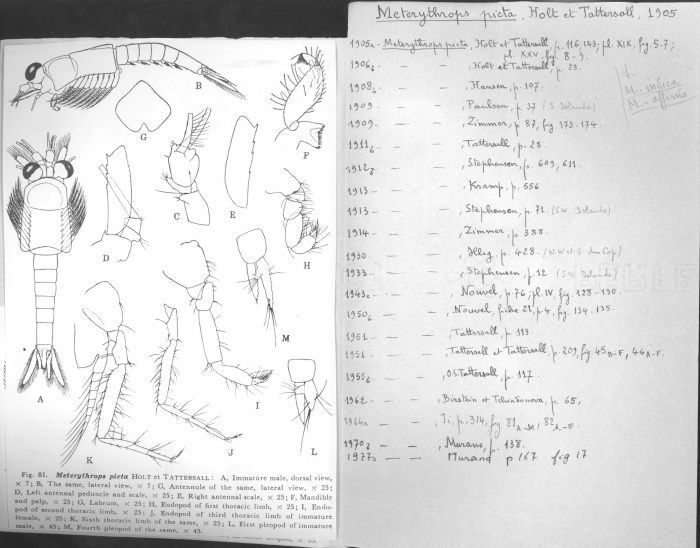 B
G
F
C
E
D
H
M
A
I
K
J
L
Fig. 81. Meterythrops picta HOLT et TATTERSALL: A, Immature male, dorsal view,
× 7; B, The same, lateral view, × 7; C, Antennule of the same, lateral view, × 25;
D, Left antennal peduncle and scale, × 25; E, Right antennal scale, × 25; F, Mandible
and palp, × 25; G, Labrum, × 25; H, Endopod of first thoracic limb, × 25; I, Endo-
pod of second thoracic limb, × 25; J, Endopod of third thoracic limb of immature
female, × 25; K, Sixth thoracic limb of the same, × 25; L, First pleopod of immature
male, × 45; M, Fourth pleopod of the same, × 45.
Meterythrops picta, Holt et Tattersall, 1905
1905a - Meterythrops picta, Holt et Tattersall, p. 116, 143; pl. XIX, fig. 5-7;
pl. XXV, fig. 8-9.
1906 — — , Holt et Tattersall, p. 23.
1908 — — , Hansen, p. 107.
1909 — — , Paulsen, p. 37 (S. Islande)
1909 — — , Zimmer, p. 87, fig. 173-174.
1911 — — , Tattersall, p. 28.
1912 — — , Stephensen, p. 609, 611.
1913 — — , Kramp, p. 556
1913 — — , Stephensen, p. 71. (SW. Islande)
1914 — — , Zimmer, p. 388.
1930 — — , Illig, p. 428. (NW et S. du Cap)
1933 — — , Stephensen, p. 12 (SW. Islande)
1943 — — , Nouvel, p. 76; pl. IV, fig. 128-130.
1950 — — , Nouvel, fiche 21, p. 4, fig. 134-135.
1951 — — , Tattersall, p. 113.
1951 — — , Tattersall et Tattersall, p. 209, fig. 45 B-F, 46 A-F.
1955 — — , O.S. Tattersall, p. 117.
1962 — — , Birstein et Tchindonova, p. 65.
1964a — — , Ii, p. 314, fig 81 A-M, 82 A-E.
1970 — — , Murano, p. 138.
1977 — — Murano p 167 fig 17
M. indica
M. affinis